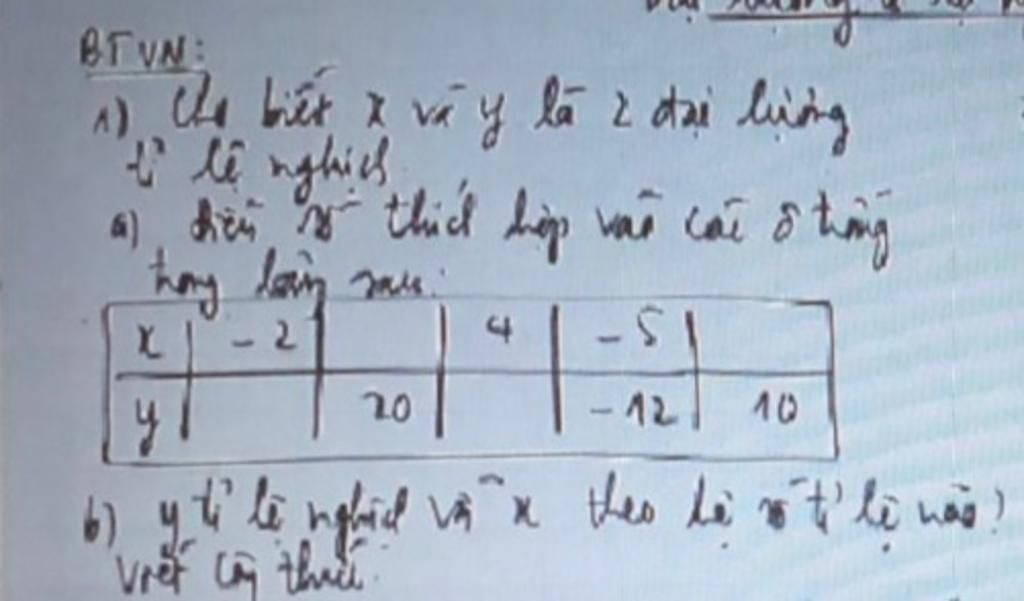 BTVN:
1) Cho biết x và y là 2 đại lượng
tỉ lệ nghịch.
a) điền số thích hợp vào các ô trống
trong bảng sau:
x -2 4 -5
y 20 -12 10
b) y tỉ lệ nghịch với x theo hệ số tỉ lệ nào?
Viết công thức.